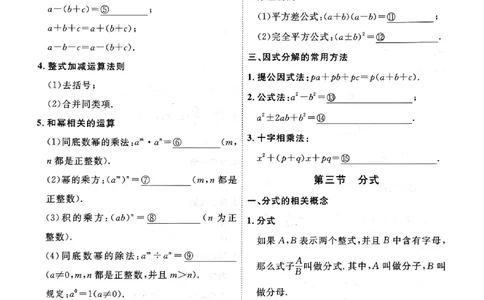 a-(b+c)=⑤________;
a+b+c=a+(b+c);
a-b-c=a-(b+c).
4.整式加减运算法则
(1)去括号;
(2)合并同类项.
5.和幂相关的运算
(1)同底数幂的乘法:aᵐ·aⁿ=⑥________(m,
n都是正整数).
(2)幂的乘方:(aᵐ)ⁿ=⑦________(m,n都是
正整数).
(3)积的乘方:(ab)ⁿ=⑧________(n为正
整数).
(4)同底数幂的除法:aᵐ÷aⁿ=⑨________
(a≠0,m,n都是正整数,并且m>n).
规定:a⁰=1(a≠0).
(1)平方差公式:(a+b)(a-b)=⑪________;
(2)完全平方公式:(a±b)²=⑫________.
三、因式分解的常用方法
1.提公因式法:pa+pb+pc=p(a+b+c).
2.公式法:a²-b²=⑬________;
a²±2ab+b²=⑭________.
3.十字相乘法:
x²+(p+q)x+pq=⑮________.
第三节 分式
一、分式的相关概念
1.分式
如果A,B表示两个整式,并且B中含有字母,
那么式子A/B叫做分式.其中,A叫做分子,B叫
做分母.